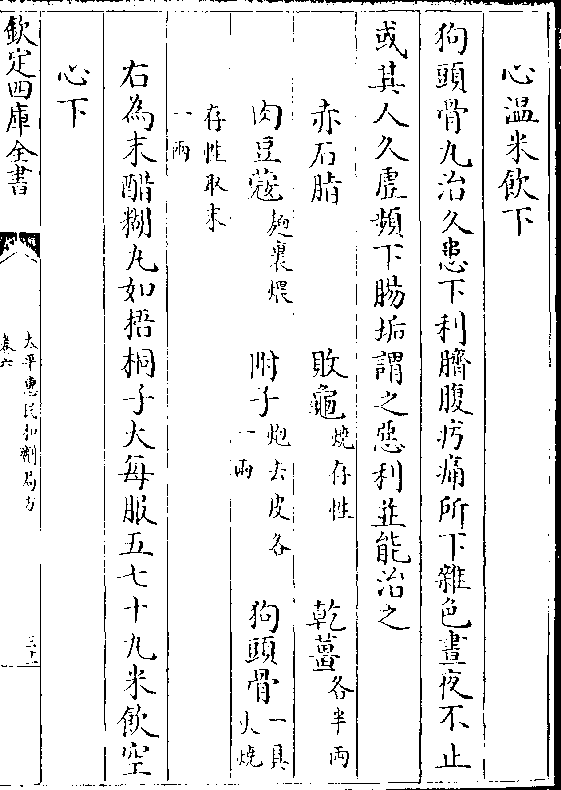 心温米飲下
狗頭骨丸治久患下利臍腹㽲痛所下雜色晝夜不止
或其人久虛頻下腸垢謂之惡利並能治之
赤石脂　敗龜燒存性　乾薑各半兩
肉豆蔻麫裹煨　附子炮去皮各一兩　狗頭骨一具火燒
存性取末一兩
右為末醋糊丸如梧桐子大每服五七十丸米飲空
心下
欽定四庫全書
太平惠民和劑局方
卷六